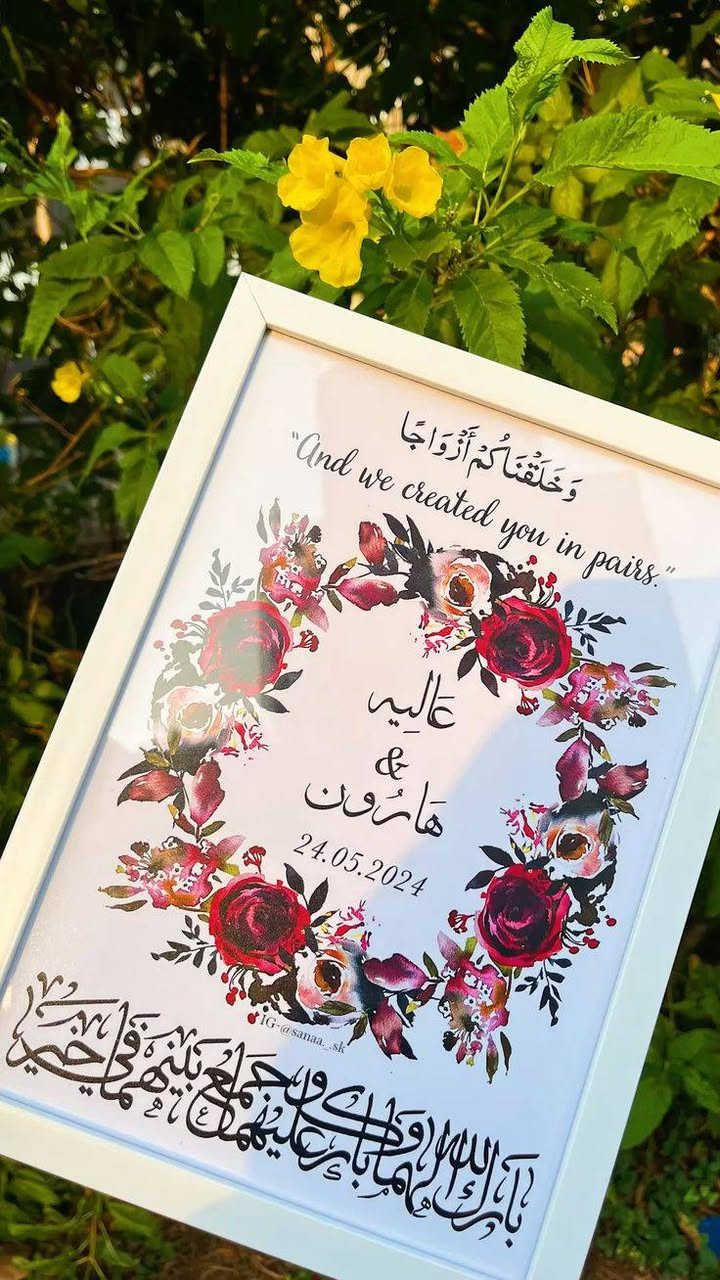 وَخَلَقْنَاكُمْ أَزْوَاجًا
"And we created you in pairs."
عَالِيه
&
هَارُون
24.05.2024
IG-@sanaa._.sk
بَارَكَ اللهُ لَهُمَا وَبَارَكَ عَلَيْهِمَا وَجَمَعَ بَيْنَهُمَا فِي خَيْر